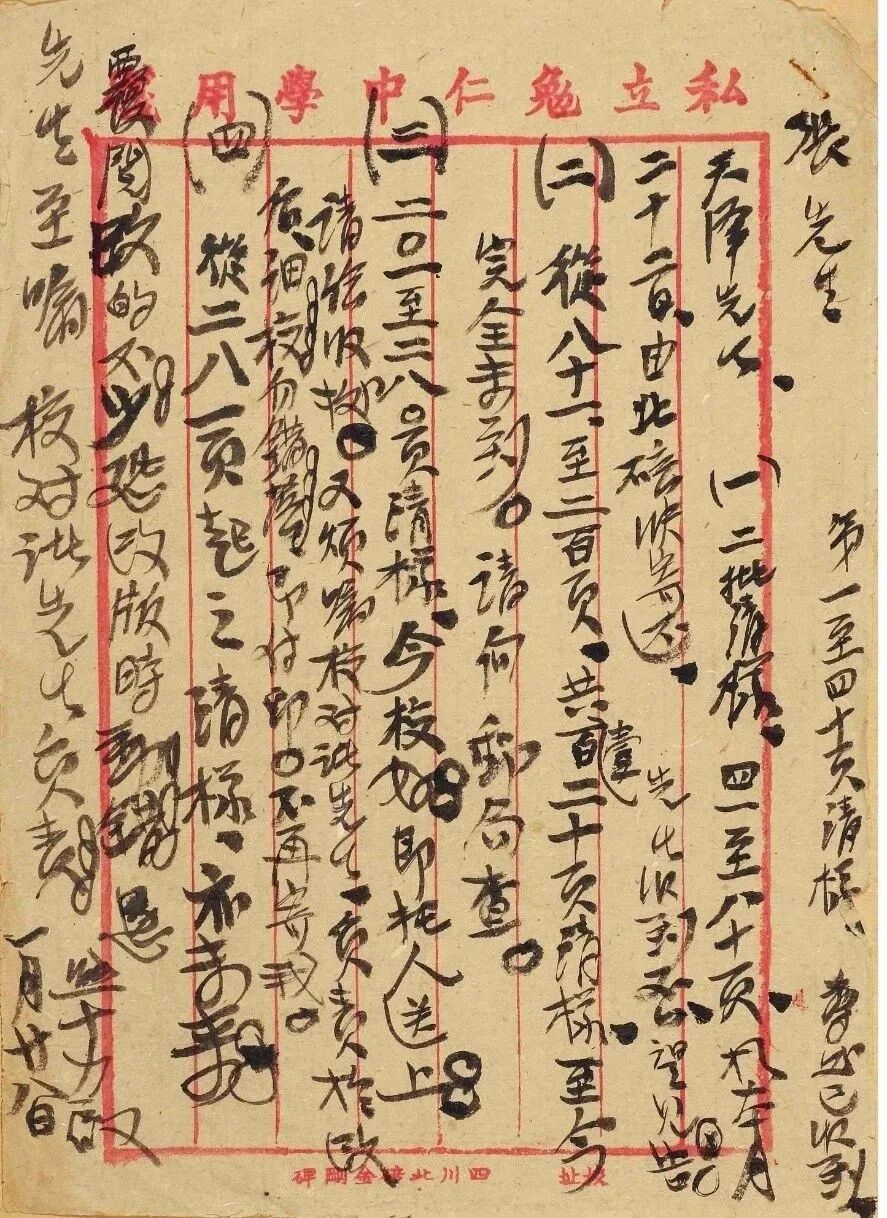 私立勉仁中學用箋
張先生 第一至四十頁清樣 已收到
天澤先生、(一)二批清樣、四一至八十頁、於本月
二十二日、由北碚快寄还、先生收到否、望見告
(二)從八十一、至二百頁、共壹百二十頁清樣、至今
完全未到。請向郵局查。
(三)二〇一至二八〇頁清樣、今校好即托人送上
請給收據。又煩囑校對諸先生、負責於改
后、細校勿錯 即付印。不再寄我。
(四)從二八一頁起之清樣、亦未到
覆閱改的不少恐改版時 錯 熊十力啟
先生至囑校對諸先生負責 一月廿八日
校址 四川北碚金剛碑